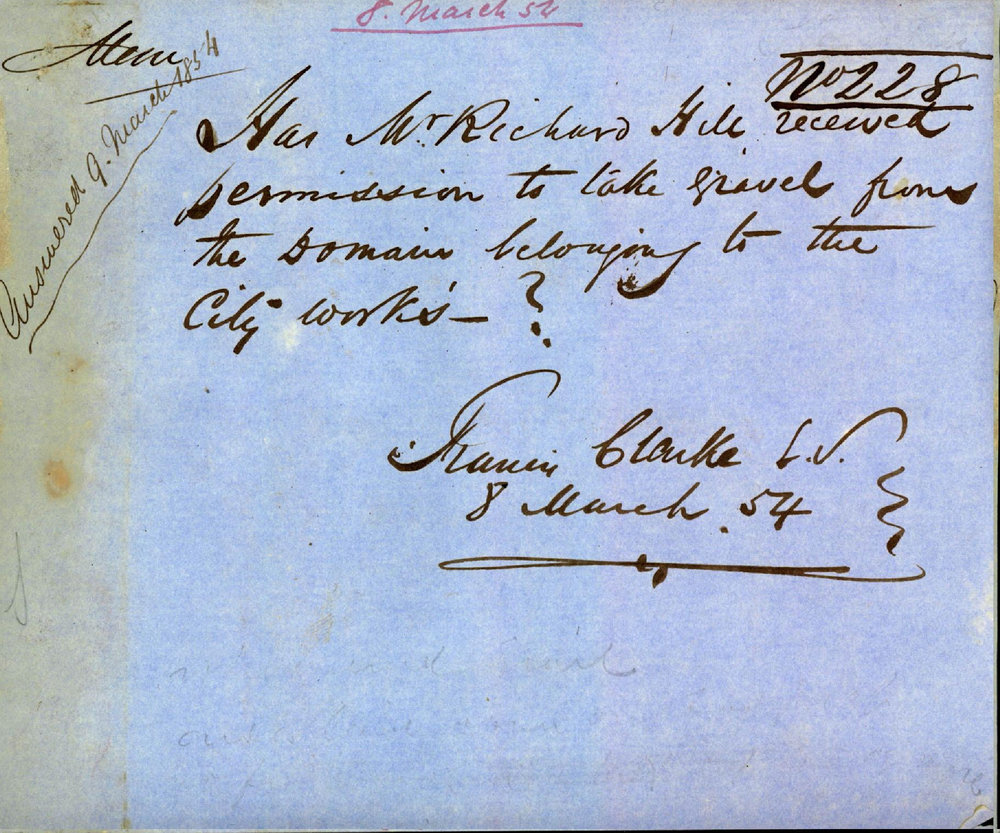 8. March 54
Mem
No 228
Answered 9. March 1854
Has Mr Richard Hill received
permission to take gravel from
the Domain belonging to the
City works — ?
Francis Clarke
8 March 54